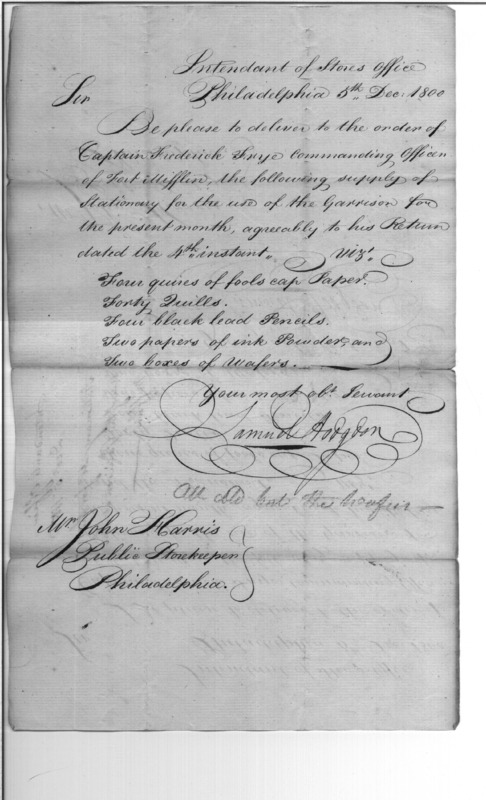 Intendant of Stores Office
Philadelphia 5th Dec. 1800
Sir
Be please to deliver to the order of
Captain Frederick Frye Commanding Officer
of Fort Mifflin, the following supply of
Stationary for the use of the Garrison for
the present month, agreeably to his Return
dated the 4th instant. Vizt.
Four quires of fools cap Paper.
Forty Quills.
Four black lead Pencils.
Two papers of ink Powder, and
Two boxes of Wafers.
Your most obt. Servant
Samuel Hodgdon
All del but the
Mr John Harris
Public Storekeeper
Philadelphia.